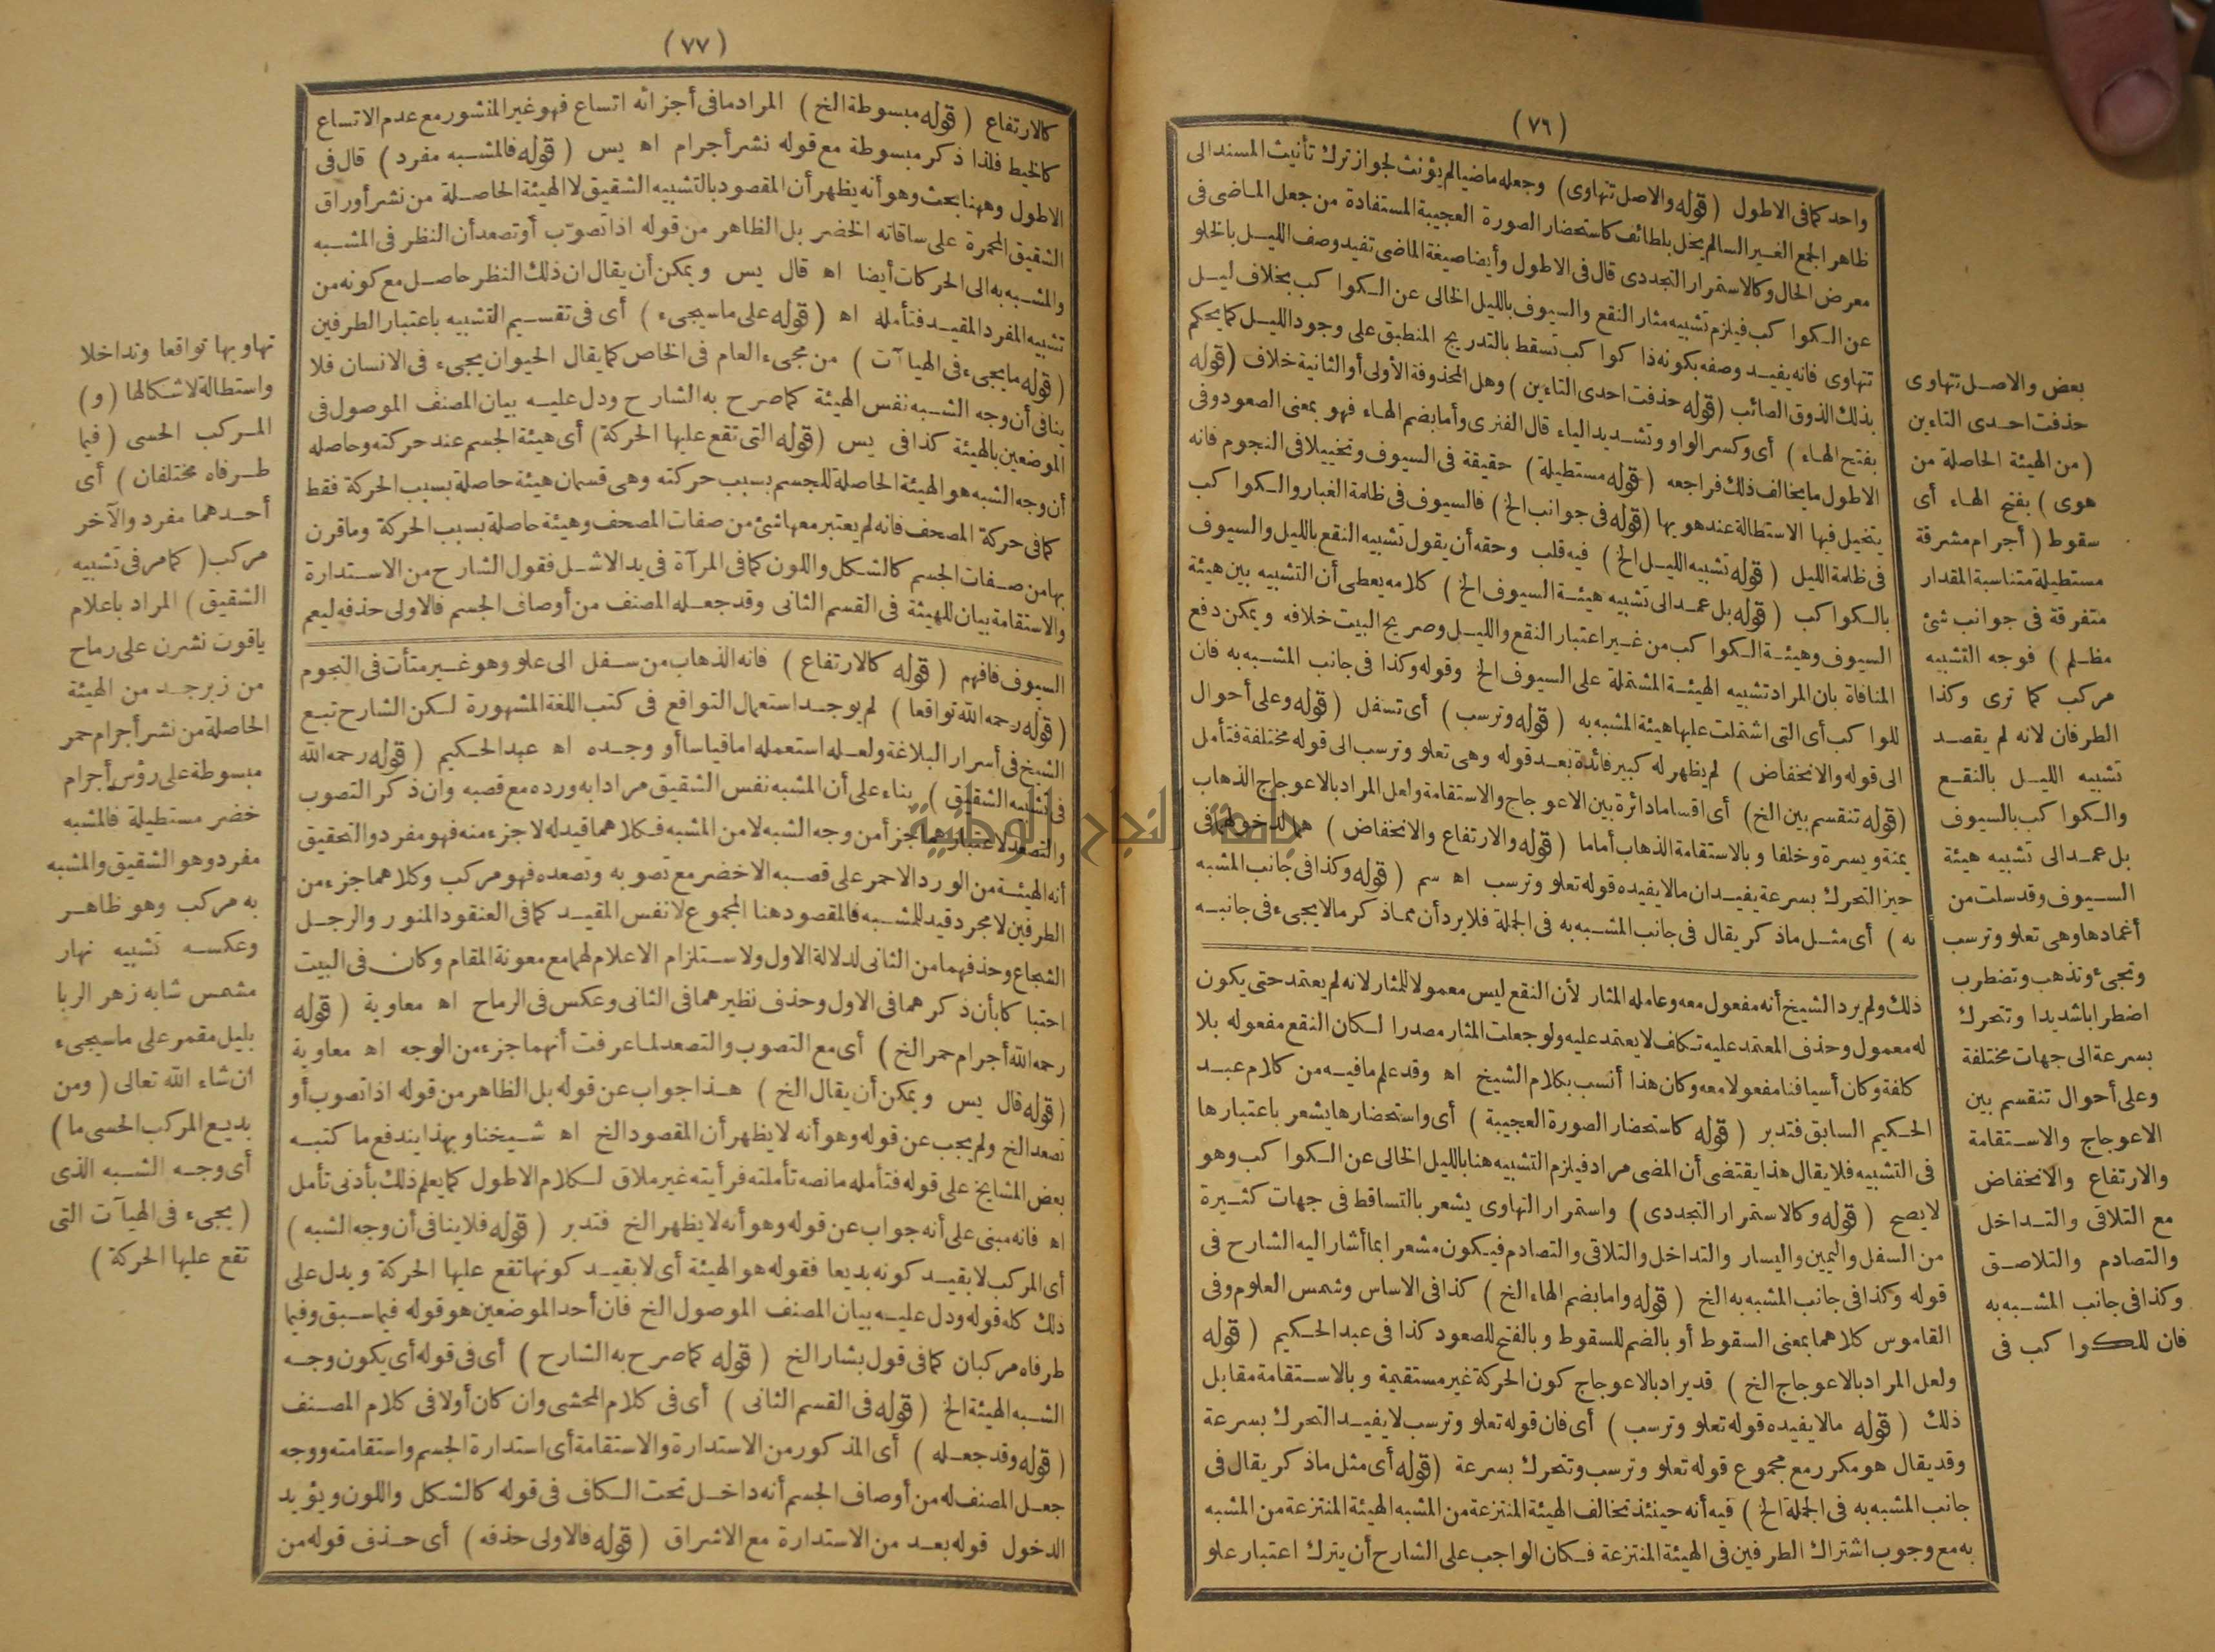 (٧٦)
واحد كما فى الاطول (قوله والاصل تتهاوى) وجعله ماضيا لم يؤنث لجواز ترك تأنيث المسند الى
ظاهر الجمع الغير السالم يخل بلطائف كاستحضار الصورة العجيبة المستفادة من جعل الماضى فى
معرض الحال وكالاستمرار التجددى قال فى الاطول وأيضا صيغة الماضى تفيد وصف الليل بالخلو
عن الكواكب فيلزم تشبيه مثار النقع والسيوف بالليل الخالى عن الكواكب بخلاف ليل
تتهاوى فانه يفيد وصفه بكونه ذا كواكب تسقط بالتدريج المنطبق على وجود الليل كما يحكم
بذلك الذوق الصائب (قوله حذفت احدى التاءين) وهل المحذوفة الأولى أو الثانية خلاف (قوله
بفتح الهاء) أى وكسر الواو وتشديد الياء قال الفنرى وأما بضم الهاء فهو بمعنى الصعود وفى
الاطول ما يخالف ذلك فراجعه (قوله مستطيلة) حقيقة فى السيوف وتخييلا فى النجوم فانه
يتخيل فيها الاستطالة عند هويها (قوله فى جوانب الخ) فالسيوف فى ظلمة الغبار والكواكب
فى ظلمة الليل (قوله تشبيه الليل الخ) فيه قلب وحقه أن يقول تشبيه النقع بالليل والسيوف
بالكواكب (قوله بل عمد الى تشبيه هيئة السيوف الخ) كلامه يعطى أن التشبيه بين هيئة
السيوف وهيئة الكواكب من غير اعتبار النقع والليل وصريح البيت خلافه ويمكن دفع
المنافاة بان المراد تشبيه الهيئة المشتملة على السيوف الخ وقوله وكذا فى جانب المشبه به فان
للواكب أى التى اشتملت عليها هيئة المشبه به (قوله وترسب) أى تسفل (قوله وعلى أحوال
الى قوله والانخفاض) لم يظهر له كبير فائدة بعد قوله وهى تعلو وترسب الى قوله مختلفة فتأمل
(قوله تنقسم بين الخ) أى اقساما دائرة بين الاعوجاج والاستقامة ولعل المراد بالاعوجاج الذهاب
يمنة ويسرة وخلفا وبالاستقامة الذهاب أماما (قوله والارتفاع والانخفاض) هما لدخولهما فى
حيز التحرك بسرعة يفيدان ما لا يفيده قوله تعلو وترسب اه سم (قوله وكذا فى جانب المشبه
به) أى مثل ما ذكر يقال فى جانب المشبه به فى الجملة فلا يرد أن مما ذكر مالا يجىء فى جانبه
ذلك ولم يرد الشيخ أنه مفعول معه وعامله المثار لأن النقع ليس معمولا للمثار لانه لم يعتمد حتى يكون
له معمول وحذف المعتمد عليه تكلف لا يعتمد عليه ولو جعلت المثار مصدرا لكان النقع مفعوله بلا
كلفة وكان أسيافنا مفعولا معه وكان هذا أنسب بكلام الشيخ اه وقد علم ما فيه من كلام عبد
الحكيم السابق فتدبر (قوله كاستحضار الصورة العجيبة) أى واستحضارها يشعر باعتبارها
فى التشبيه فلا يقال هذا يقتضى أن المضى مراد فيلزم التشبيه هنا بالليل الخالى عن الكواكب وهو
لا يصح (قوله وكالاستمرار التجددى) واستمرار التهاوى يشعر بالتساقط فى جهات كثيرة
من السفل واليمين واليسار والتداخل والتلاقى والتصادم فيكون مشعرا بما أشار اليه الشارح فى
قوله وكذا فى جانب المشبه به الخ (قوله واما بضم الهاء الخ) كذا فى الاساس وشمس العلوم وفى
القاموس كلاهما بمعنى السقوط أو بالضم للسقوط وبالفتح للصعود كذا فى عبد الحكيم (قوله
ولعل المراد بالاعوجاج الخ) قد يراد بالاعوجاج كون الحركة غير مستقيمة وبالاستقامة مقابل
ذلك (قوله مالا يفيده قوله تعلو وترسب) أى فان قوله تعلو وترسب لا يفيد التحرك بسرعة
وقد يقال هو مكرر مع مجموع قوله تعلو وترسب وتتحرك بسرعة (قوله أى مثل ما ذكر يقال فى
جانب المشبه به فى الجملة الخ) فيه أنه حينئذ تخالف الهيئة المنتزعة من المشبه الهيئة المنتزعة من المشبه
به مع وجوب اشتراك الطرفين فى الهيئة المنتزعة فكان الواجب على الشارح أن يترك اعتبار علو
بعض والاصل تتهاوى
حذفت احدى التاءين
(من الهيئة الحاصلة من
هوى) بفتح الهاء أى
سقوط (أجرام مشرقة
مستطيلة متناسبة المقدار
متفرقة فى جوانب شئ
مظلم) فوجه التشبيه
مركب كما ترى وكذا
الطرفان لانه لم يقصد
تشبيه الليل بالنقع
والكواكب بالسيوف
بل عمد الى تشبيه هيئة
السيوف وقد سلت من
أغمادها وهى تعلو وترسب
وتجىء وتذهب وتضطرب
اضطرابا شديدا وتتحرك
بسرعة الى جهات مختلفة
وعلى أحوال تنقسم بين
الاعوجاج والاستقامة
والارتفاع والانخفاض
مع التلاقى والتداخل
والتصادم والتلاصق
وكذا فى جانب المشبه به
فان للكواكب فى
(٧٧)
كالارتفاع (قوله مبسوطة الخ) المراد ما فى أجزائه اتساع فهو غير المنشور مع عدم الاتساع
كالخيط فلذا ذكر مبسوطة مع قوله نشر أجرام اه يس (قوله فالمشبه مفرد) قال فى
الاطول وههنا بحث وهو أنه يظهر أن المقصود بالتشبيه الشقيق لا الهيئة الحاصلة من نشر أوراق
الشقيق المحمرة على ساقاته الخضر بل الظاهر من قوله اذا تصوّب أو تصعد أن النظر فى المشبه
والمشبه به الى الحركات أيضا اه قال يس ويمكن أن يقال ان ذلك النظر حاصل مع كونه من
تشبيه المفرد المقيد فتأمله اه (قوله على ما سيجىء) أى فى تقسيم التشبيه باعتبار الطرفين
(قوله ما يجىء فى الهيآت) من مجىء العام فى الخاص كما يقال الحيوان يجىء فى الانسان فلا
ينافى أن وجه الشبه نفس الهيئة كما صرح به الشارح ودل عليه بيان المصنف الموصول فى
الموضعين بالهيئة كذا فى يس (قوله التى تقع عليها الحركة) أى هيئة الجسم عند حركته وحاصله
أن وجه الشبه هو الهيئة الحاصلة للجسم بسبب حركته وهى قسمان هيئة حاصلة بسبب الحركة فقط
كما فى حركة المصحف فانه لم يعتبر معها شئ من صفات المصحف وهيئة حاصلة بسبب الحركة وما قرن
بها من صفات الجسم كالشكل واللون كما فى المرآة فى يد الاشل فقول الشارح من الاستدارة
والاستقامة بيان للهيئة فى القسم الثانى وقد جعله المصنف من أوصاف الجسم فالاولى حذفه ليعم
السيوف فافهم (قوله كالارتفاع) فانه الذهاب من سفل الى علو وهو غير متأت فى النجوم
(قوله رحمه الله تواقعا) لم يوجد استعمال التواقع فى كتب اللغة المشهورة لكن الشارح تبع
الشيخ فى أسرار البلاغة ولعله استعمله اما قياسا أو وجده اه عبد الحكيم (قوله رحمه الله
فى تشبيه الشقيق) بناء على أن المشبه نفس الشقيق مرادا به ورده مع قصبه وان ذكر التصوب
والتصعد لاعتبارهما جزأ من وجه الشبه لا من المشبه فكلاهما قيد له لا جزء منه فهو مفرد والتحقيق
أنه الهيئة من الورد الاحمر على قصبه الاخضر مع تصوبه وتصعده فهو مركب وكلاهما جزء من
الطرفين لا مجرد قيد للمشبه فالمقصود هنا المجموع لا نفس المقيد كما فى العنقود المنور والرجل
الشجاع وحذفهما من الثانى لدلالة الاول ولاستلزام الاعلام لهما مع معونة المقام وكان فى البيت
احتباكا بأن ذكرهما فى الاول وحذف نظيرهما فى الثانى وعكس فى الرماح اه معاوية (قوله
رحمه الله أجرام حمر الخ) أى مع التصوب والتصعد لما عرفت أنهما جزء من الوجه اه معاوية
(قوله قال يس ويمكن أن يقال الخ) هذا جواب عن قوله بل الظاهر من قوله اذا تصوب أو
تصعد الخ ولم يجب عن قوله وهو أنه لا يظهر أن المقصود الخ اه شيخنا وبهذا يندفع ما كتبه
بعض المشايخ على قوله فتأمله ما نصه تأملته فرأيته غير ملاق لكلام الاطول كما يعلم ذلك بأدنى تأمل
اه فانه مبنى على أنه جواب عن قوله وهو أنه لا يظهر الخ فتدبر (قوله فلا ينافى أن وجه الشبه)
أى المركب لا بقيد كونه بديعا فقوله هو الهيئة أى لا بقيد كونها تقع عليها الحركة ويدل على
ذلك كله قوله ودل عليه بيان المصنف الموصول الخ فان أحد الموضعين هو قوله فيما سبق وفيما
طرفاه مركبان كما فى قول بشار الخ (قوله كما صرح به الشارح) أى فى قوله أى يكون وجه
الشبه الهيئة الخ (قوله فى القسم الثانى) أى فى كلام المحشى وان كان أولا فى كلام المصنف
(قوله وقد جعله) أى المذكور من الاستدارة والاستقامة أى استدارة الجسم واستقامته ووجه
جعل المصنف له من أوصاف الجسم أنه داخل تحت الكاف فى قوله كالشكل واللون ويؤيد
الدخول قوله بعد من الاستدارة مع الاشراق (قوله فالاولى حذفه) أى حذف قوله من
تهاويها تواقعا وتداخلا
واستطالة لاشكالها (و)
المركب الحسى (فيما
طرفاه مختلفان) أى
أحدهما مفرد والآخر
مركب (كما مر فى تشبيه
الشقيق) المراد باعلام
ياقوت نشرن على رماح
من زبرجد من الهيئة
الحاصلة من نشر أجرام حمر
مبسوطة على رؤس أجرام
خضر مستطيلة فالمشبه
مفرد وهو الشقيق والمشبه
به مركب وهو ظاهر
وعكسه تشبيه نهار
مشمس شابه زهر الربا
بليل مقمر على ما سيجىء
ان شاء الله تعالى (ومن
بديع المركب الحسى ما)
أى وجه الشبه الذى
(يجىء فى الهيآت التى
تقع عليها الحركة)
جامعة النجاح الوطنية